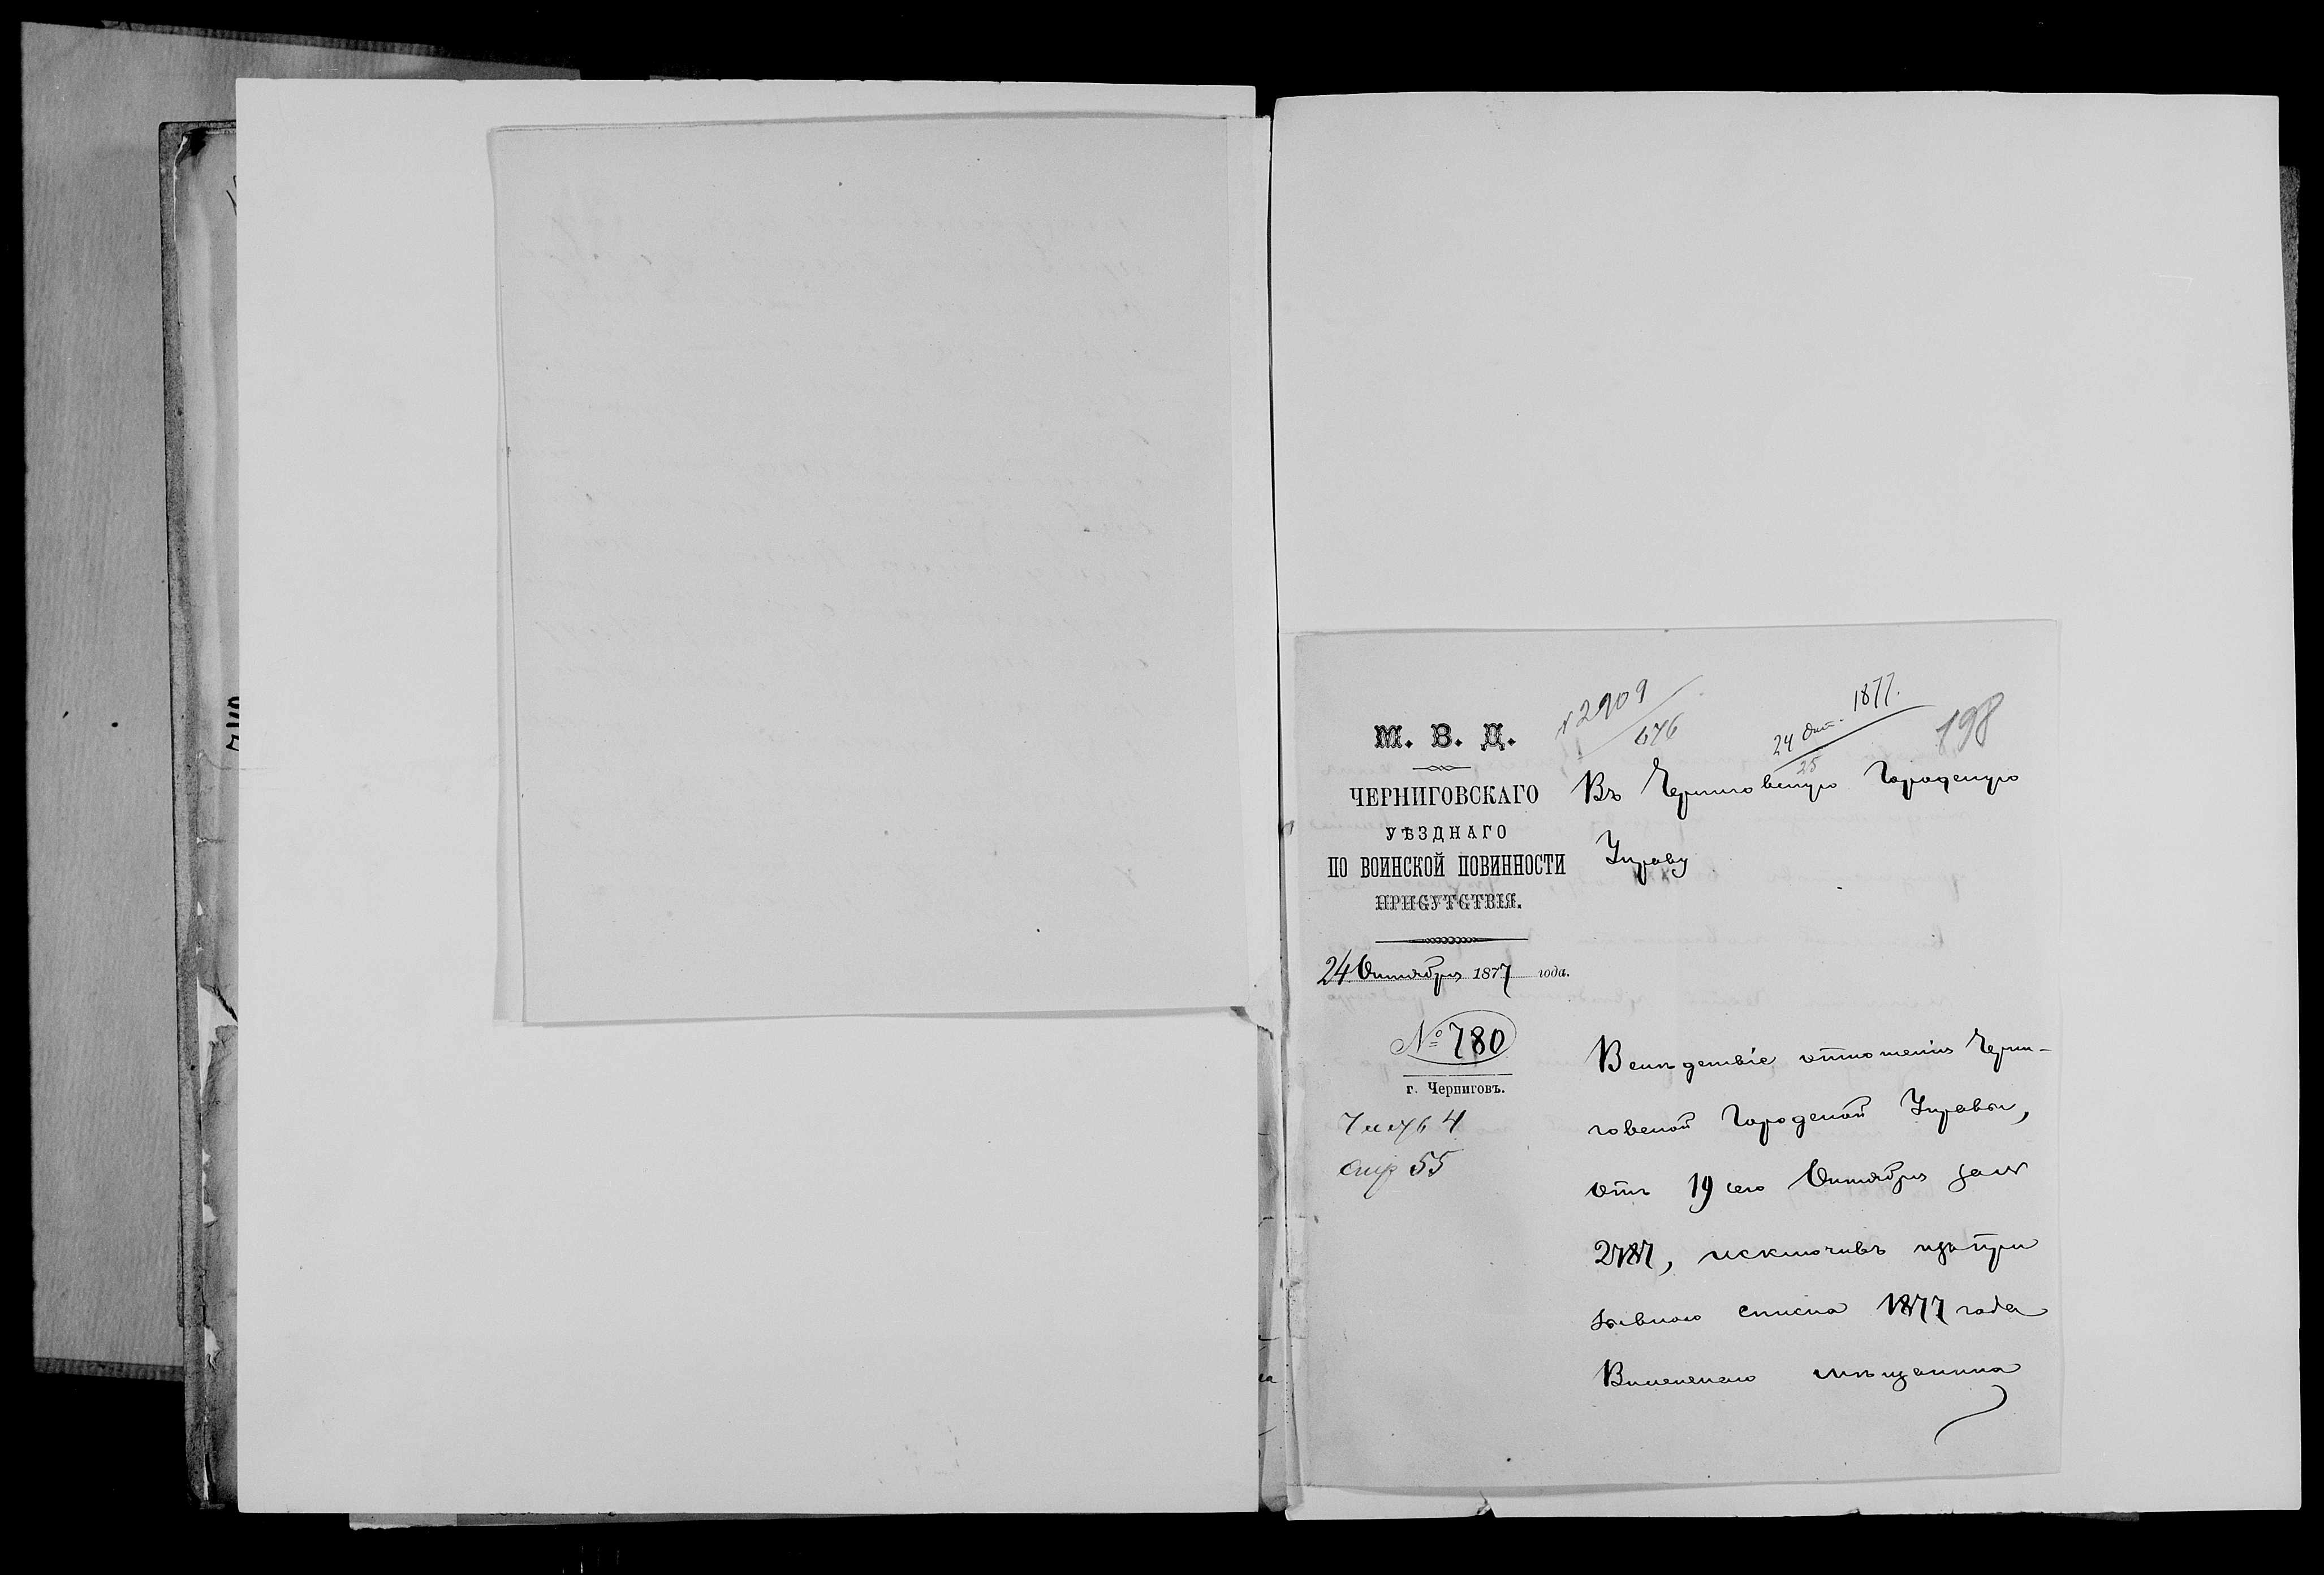 № 2909
646
24 Окт. 1877.
25
198
М. В. Д.
ЧЕРНИГОВСКАГО
УѢЗДНАГО
ПО ВОИНСКОЙ ПОВИННОСТИ
ПРИСУТСТВІЯ.
24 Октября 1877 года.
№ 780
г. Черниговъ.
4
стр 55
Въ Черниговскую Городскую
Управу
Вслѣдствіе отношенія Черни-
говской Городской Управы,
отъ 19 сего Октября за №
2787, исключивъ изъ при
зывного списка 1877 года
мѣщанина